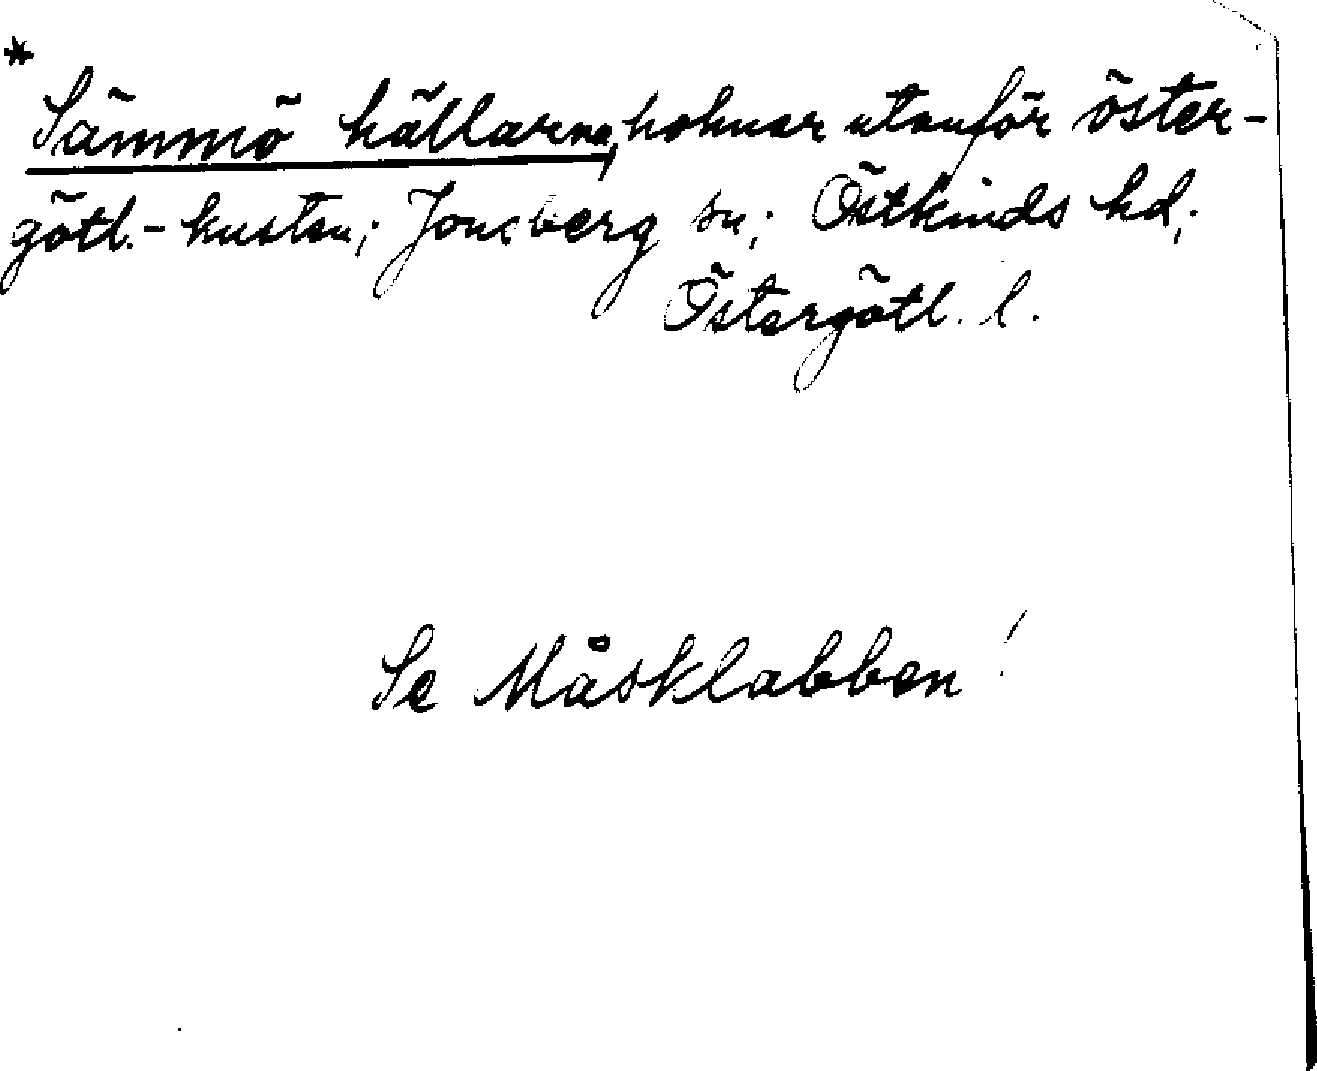 * Sämmö hällarna, holmar utanför öster-
götl.-kusten; Jonsberg sn; Östkinds hd;
Östergötl. l.
Se Måsklabben!